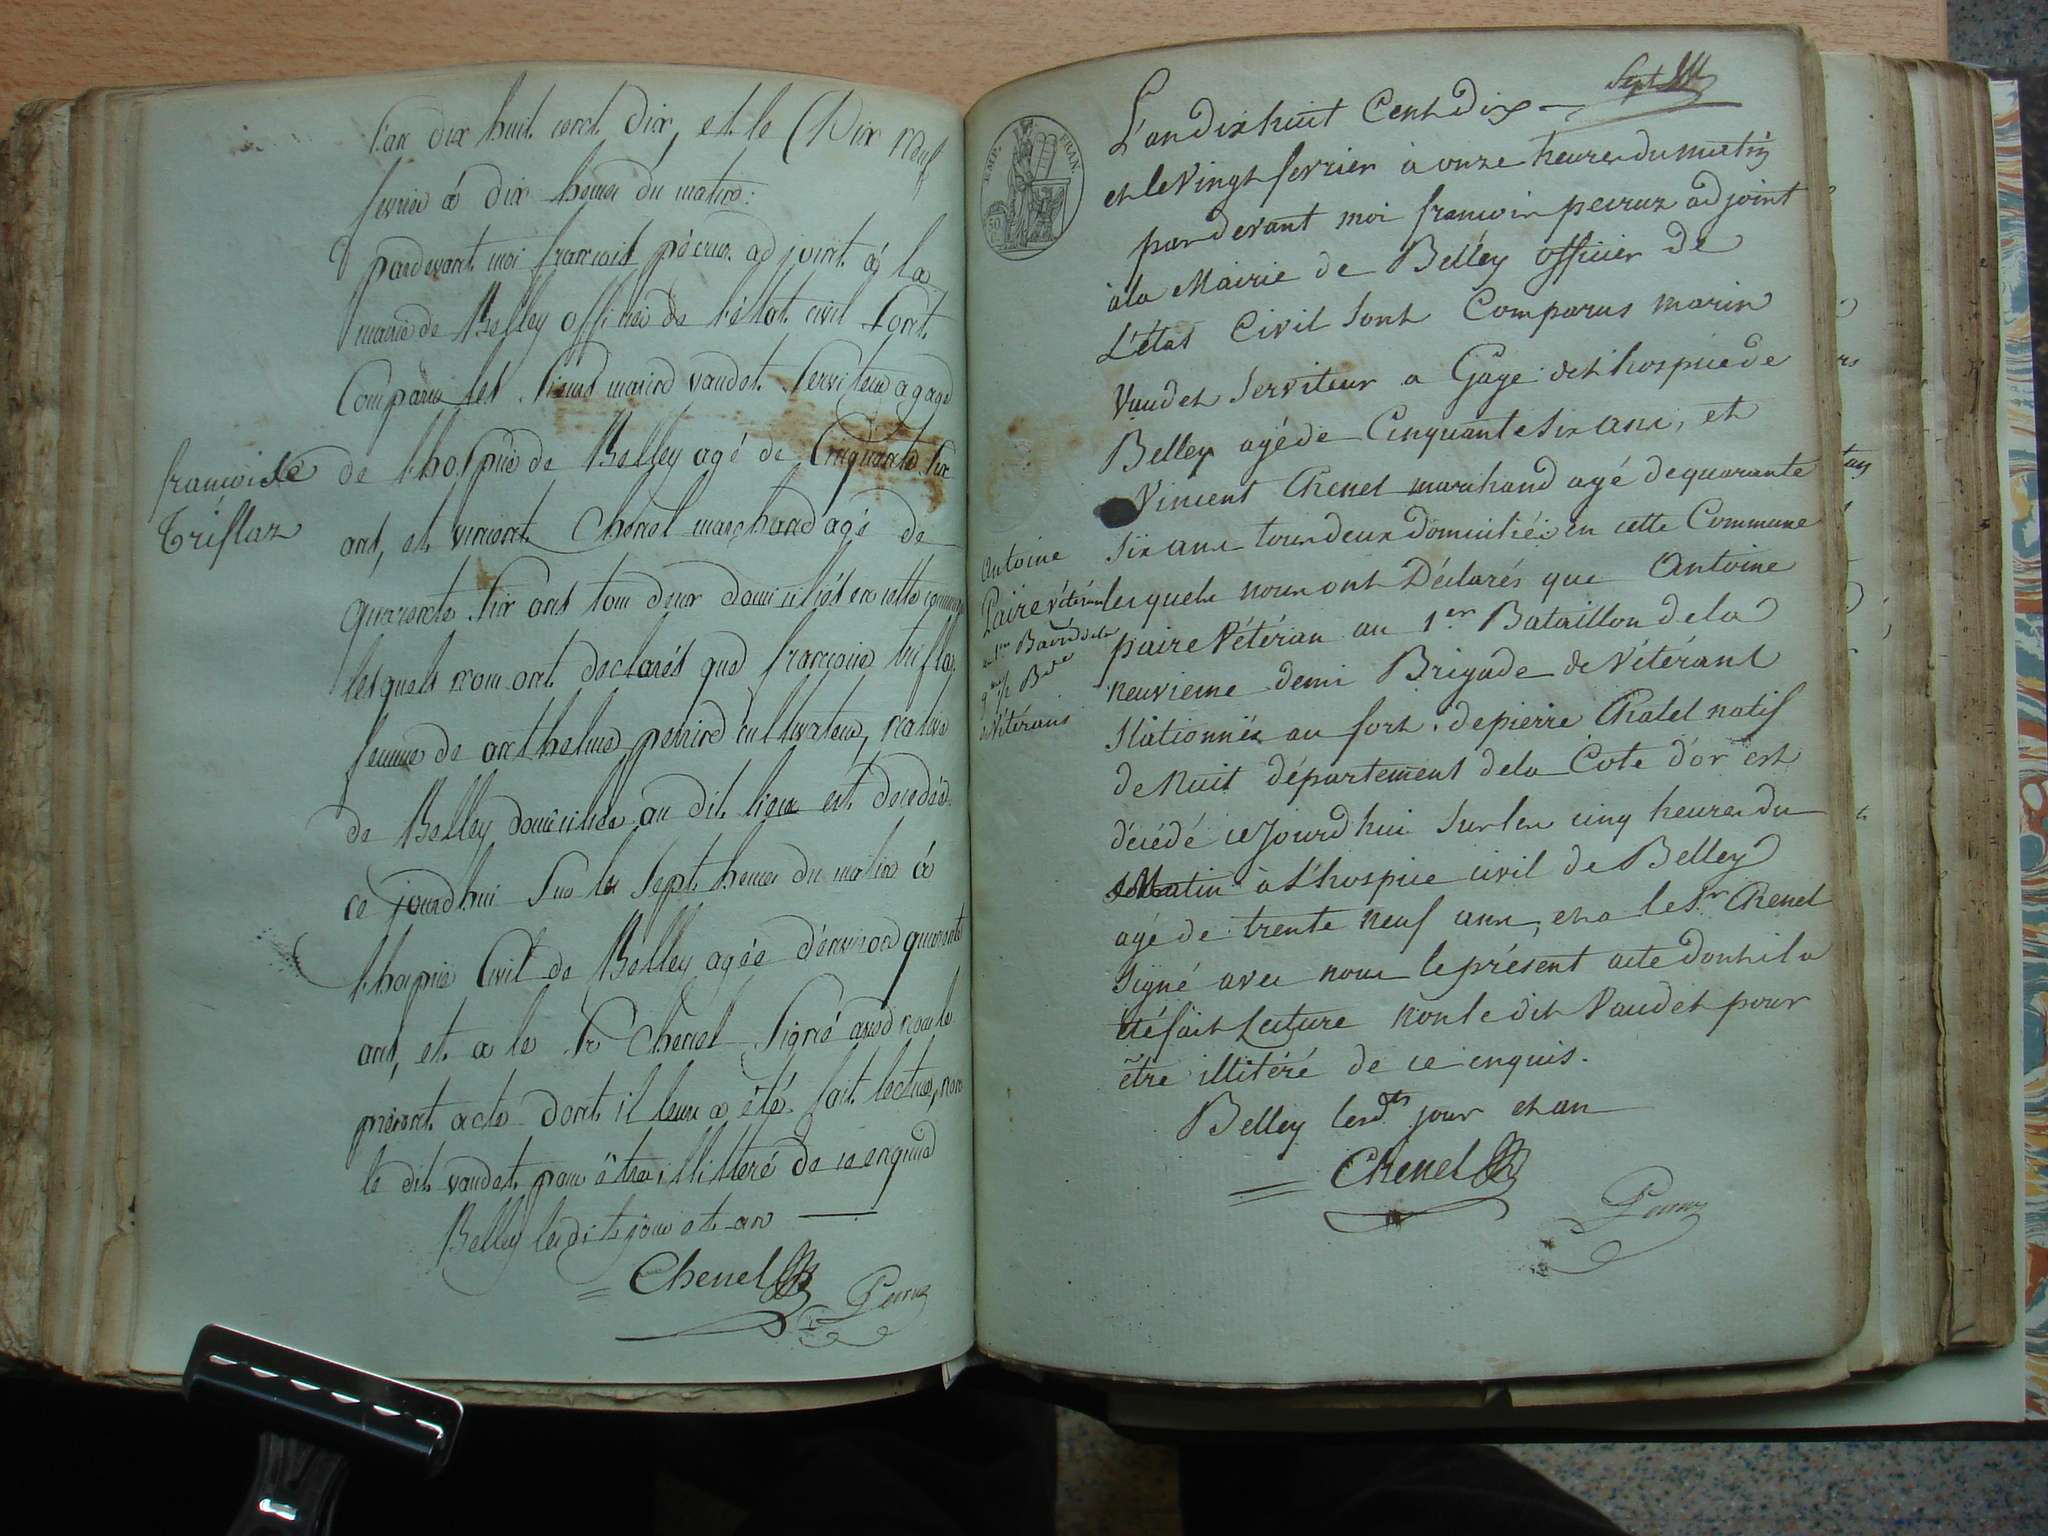 L'an dix huit cent dix, et le Dix neuf
fevrier à dix heures du matin:
pardevant moi françois péeruz adjoint à la
mairie de Belley officier de l'état civil sont
Comparus les sieurs marin vaudet serviteur a gage
de l'hospice de Belley agé de Cinquante six
ans, et vincent Chenel marchand agé de
quarante six ans tous deux domiciliés en cette commune
lesquels nous ont declarés que françoise triflaz
femme de anthelme perrin cultivateur, native
de Belley domiciliée au dit lieu est decedée
ce jourd'hui sur les sept heures du matin à
l'hospice Civil de Belley agée d'environ quarante
ans, et a le Sr Chenel signé avec nous le
présent acte dont il leur a été fait lecture, non
le dit vaudet pour être illitteré de ce enquis
Belley les dits jour et an
Chenel
françoise
Triflaz
Sept
EMP. FRAN.
50
L'an dix huit Cent Dix
et le vingt fevrier à onze heures du matin
par devant moi francois peeruz adjoint
à la Mairie de Belley officier de
L'état Civil sont Comparus marin
Vaudet serviteur a Gage de l'hospice de
Belley agé de Cinquante six ans, et
Vincent Chenel marchand agé de quarante
six ans tous deux Domiciliés en cette Commune
lesquels nous ont Déclarés que Antoine
paire Vétéran au 1er Bataillon de la
neuvieme demi Brigade de Vétérans
stationnés au fort de pierre Chatel natif
de Nuit département de la Cote d'or est
décédé ce Jourd'hui sur les cinq heures du
Matin à L'hospice civil de Belley
agé de trente neuf ans, et a le Sr Chenel
signé avec nous le présent acte dont il a
été fait Lecture non le dit Vaudet pour
être illitéré de ce enquis.
Belley lesdts jour et an
Chenel
Antoine
Paire vétéran
au 1er de la
9me 1/2 Bde
de Vétérans